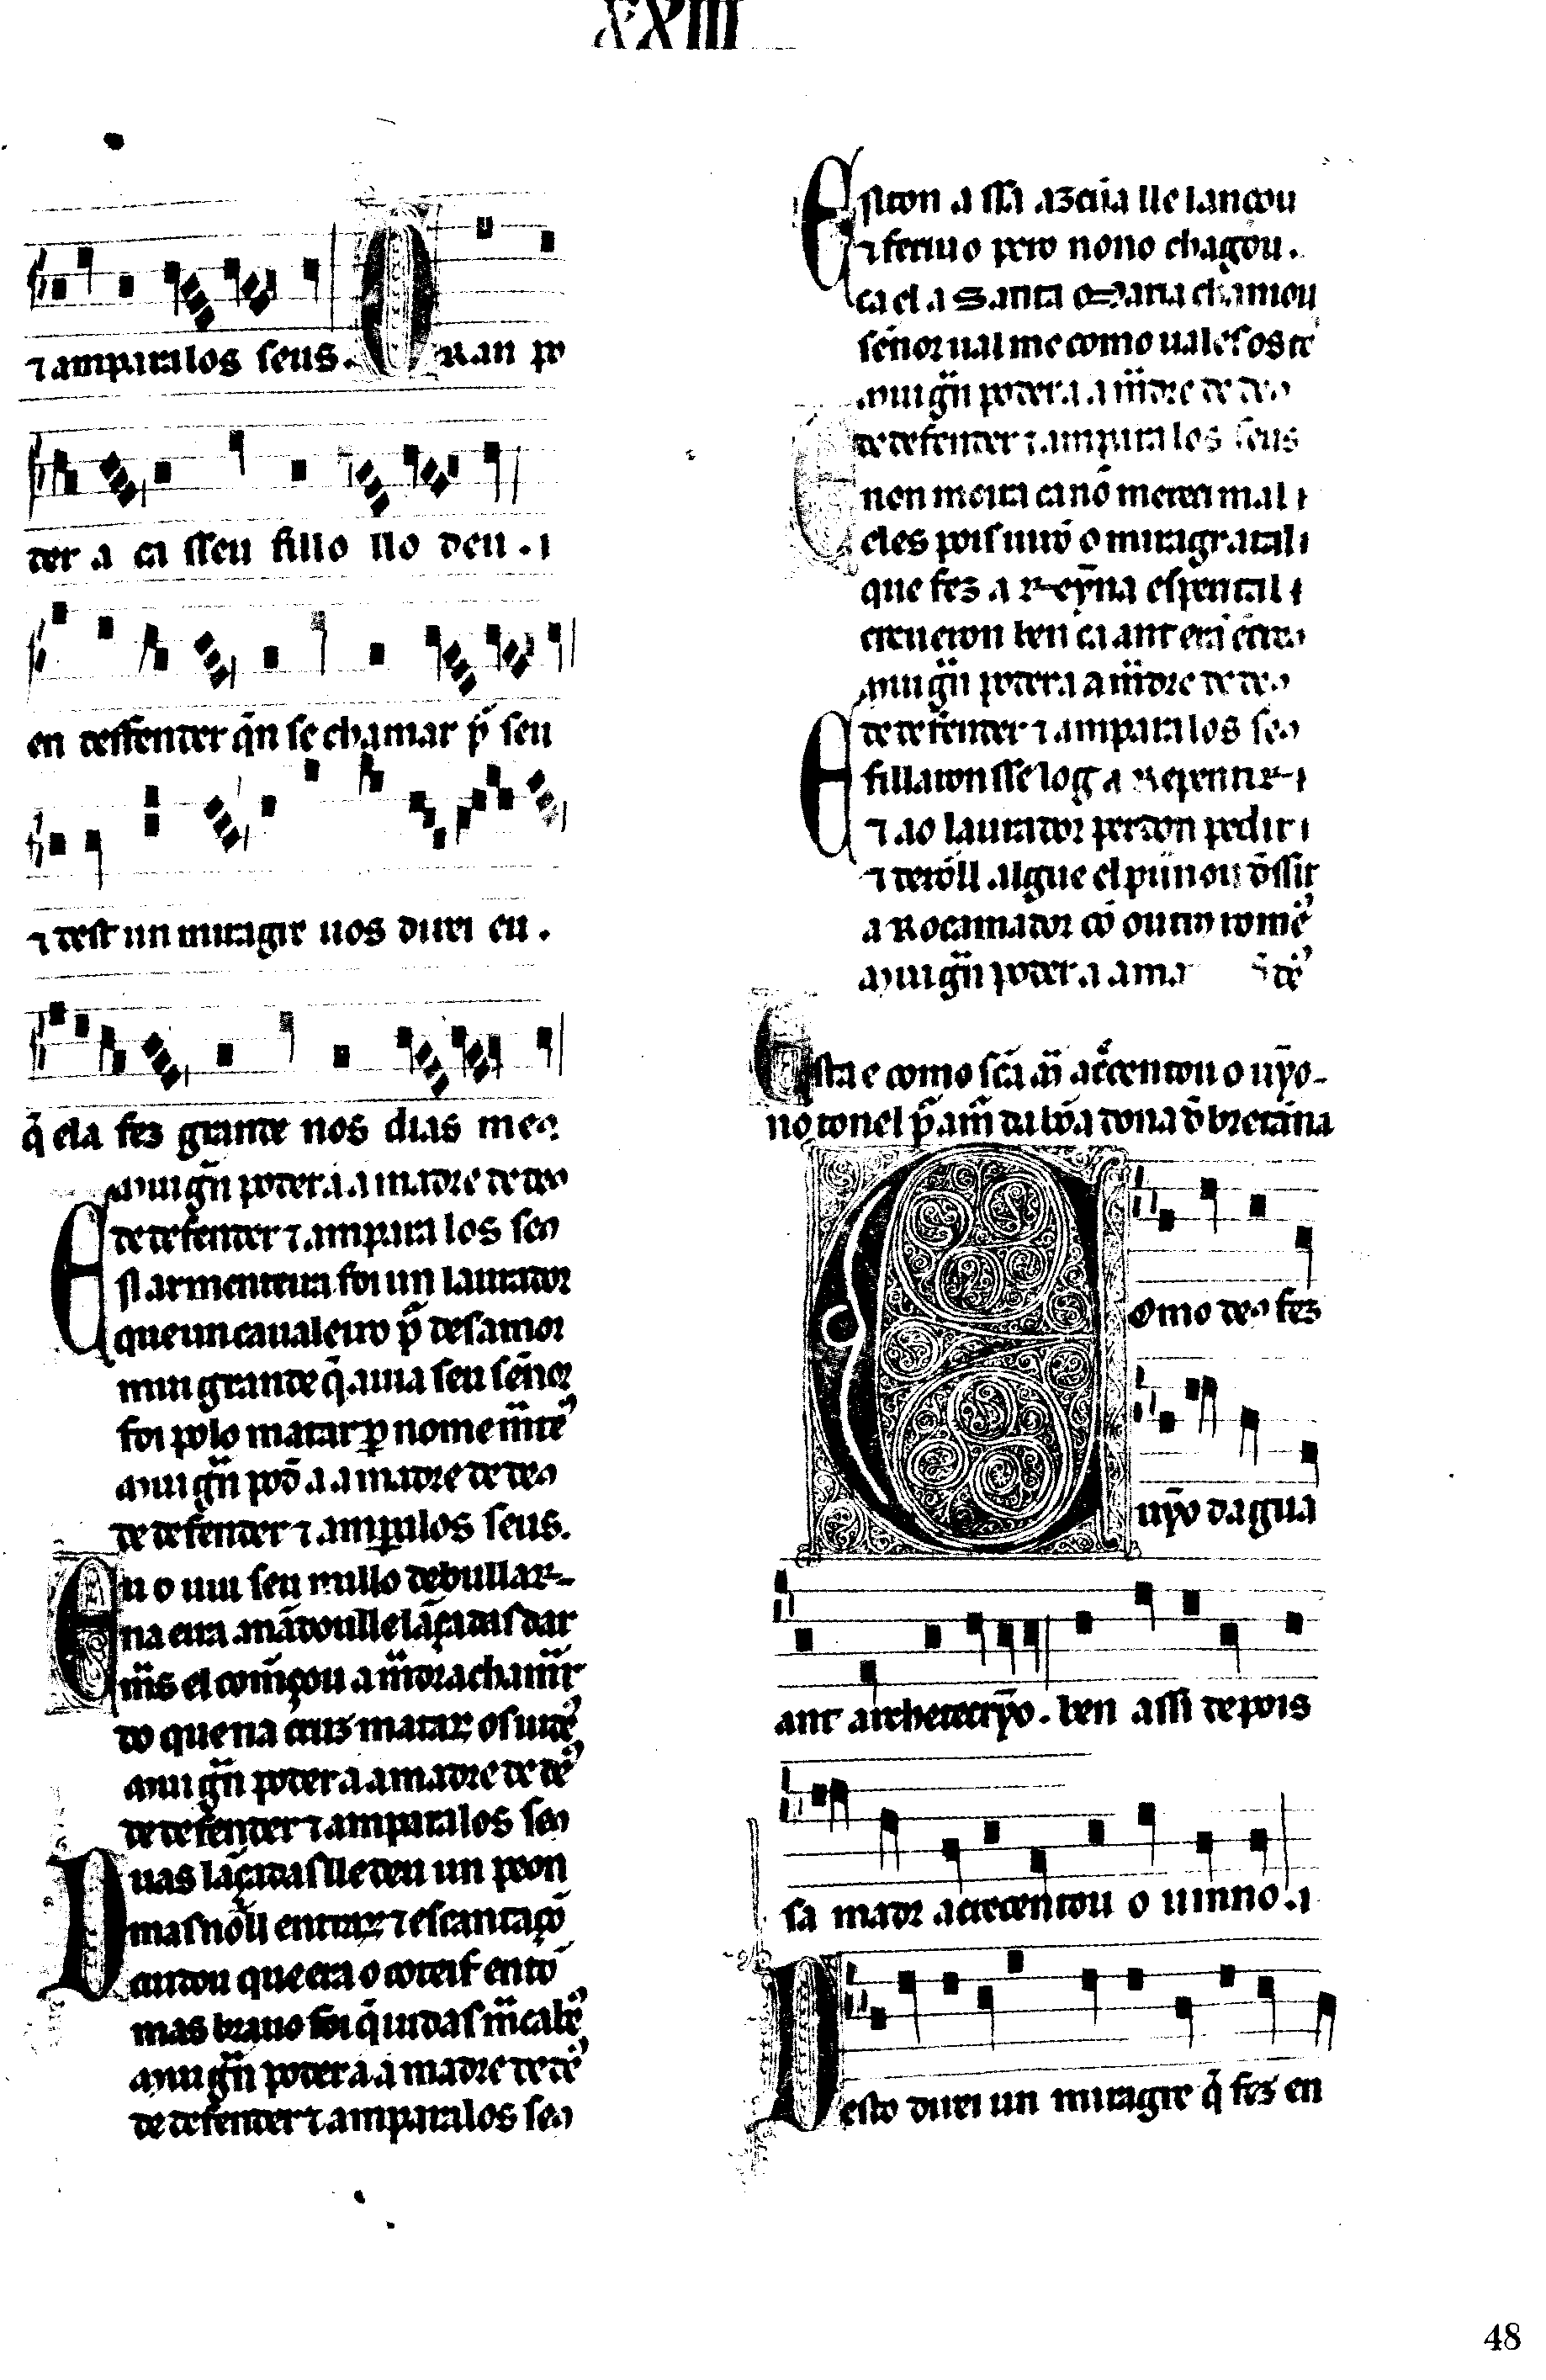 XXIII
⁊ amparalos seus. Gran po
der a ca sseu fillo llo deu. ⁊
en deffender q̄n se chamar p̄ seu
⁊ dest un miragre uos direi eu.
q̄ ela fez grande nos dias meꝯ
Mui gr̄n poder á a madre de deo
de defender ⁊ amparalos seꝯ
En armenteira foi un laurador
que un caualeiro p̄ desamor
mui grande q̄ auia seu señor
foi polo matar ꝑ nome
Mui gr̄n pod̄ a a madre de deꝯ
de defender ⁊ amꝑalos seus.
Eu o uiu seu millo debullar
na eira mādoulle lāçadas dar
el comēçou a
do que na cruz matarō os iudēꝯ
Mui gr̄n poder a a madre de dēꝯ
de defender ⁊ amparalos seꝯ
Duas lāçadas lle deu un peon
mas nō ll entrarō ⁊ escantaçō
cuidou que era o coteif entō
mas brauo foi q̄ iudas
Mui gr̄n poder á a madre de dēꝯ
de defender ⁊ amparalos seꝯ
Enton a ssa azcūa lle lançou
⁊ feriu o pero nono chagou.
ca el a Santa Maria chamou
señor ual me como uales os te
Mui gr̄n poder a a de deꝯ
de defender ⁊ amparalos seus
E non moira ca nō mereci mal ⁊
eles pois uirō o miragr a tal ⁊
que fez a Reȳna esperital ⁊
creueron ben ca ant
Mui gr̄n poder a a de deꝯ
de defender ⁊ amparalos seꝯ
E fillaron sse log a Repentir ⁊
⁊ ao laurador perdon pedir ⁊
⁊ derōll algue el punnou d̄ss ir
a Rocamador cō outrꝯ
Mui gr̄n poder a a ma dēꝯ
Esta e como sc̄a acrecentou o uȳo
no tonel p̄ am̄ da bōa dona d̄ bretāna
Como deꝯ fez
uȳo dagua
ant archetecrȳo. ben assi depois
sa madr acrecentou o uinno. ⁊
Desto direi un miragre q̄ fez en
48